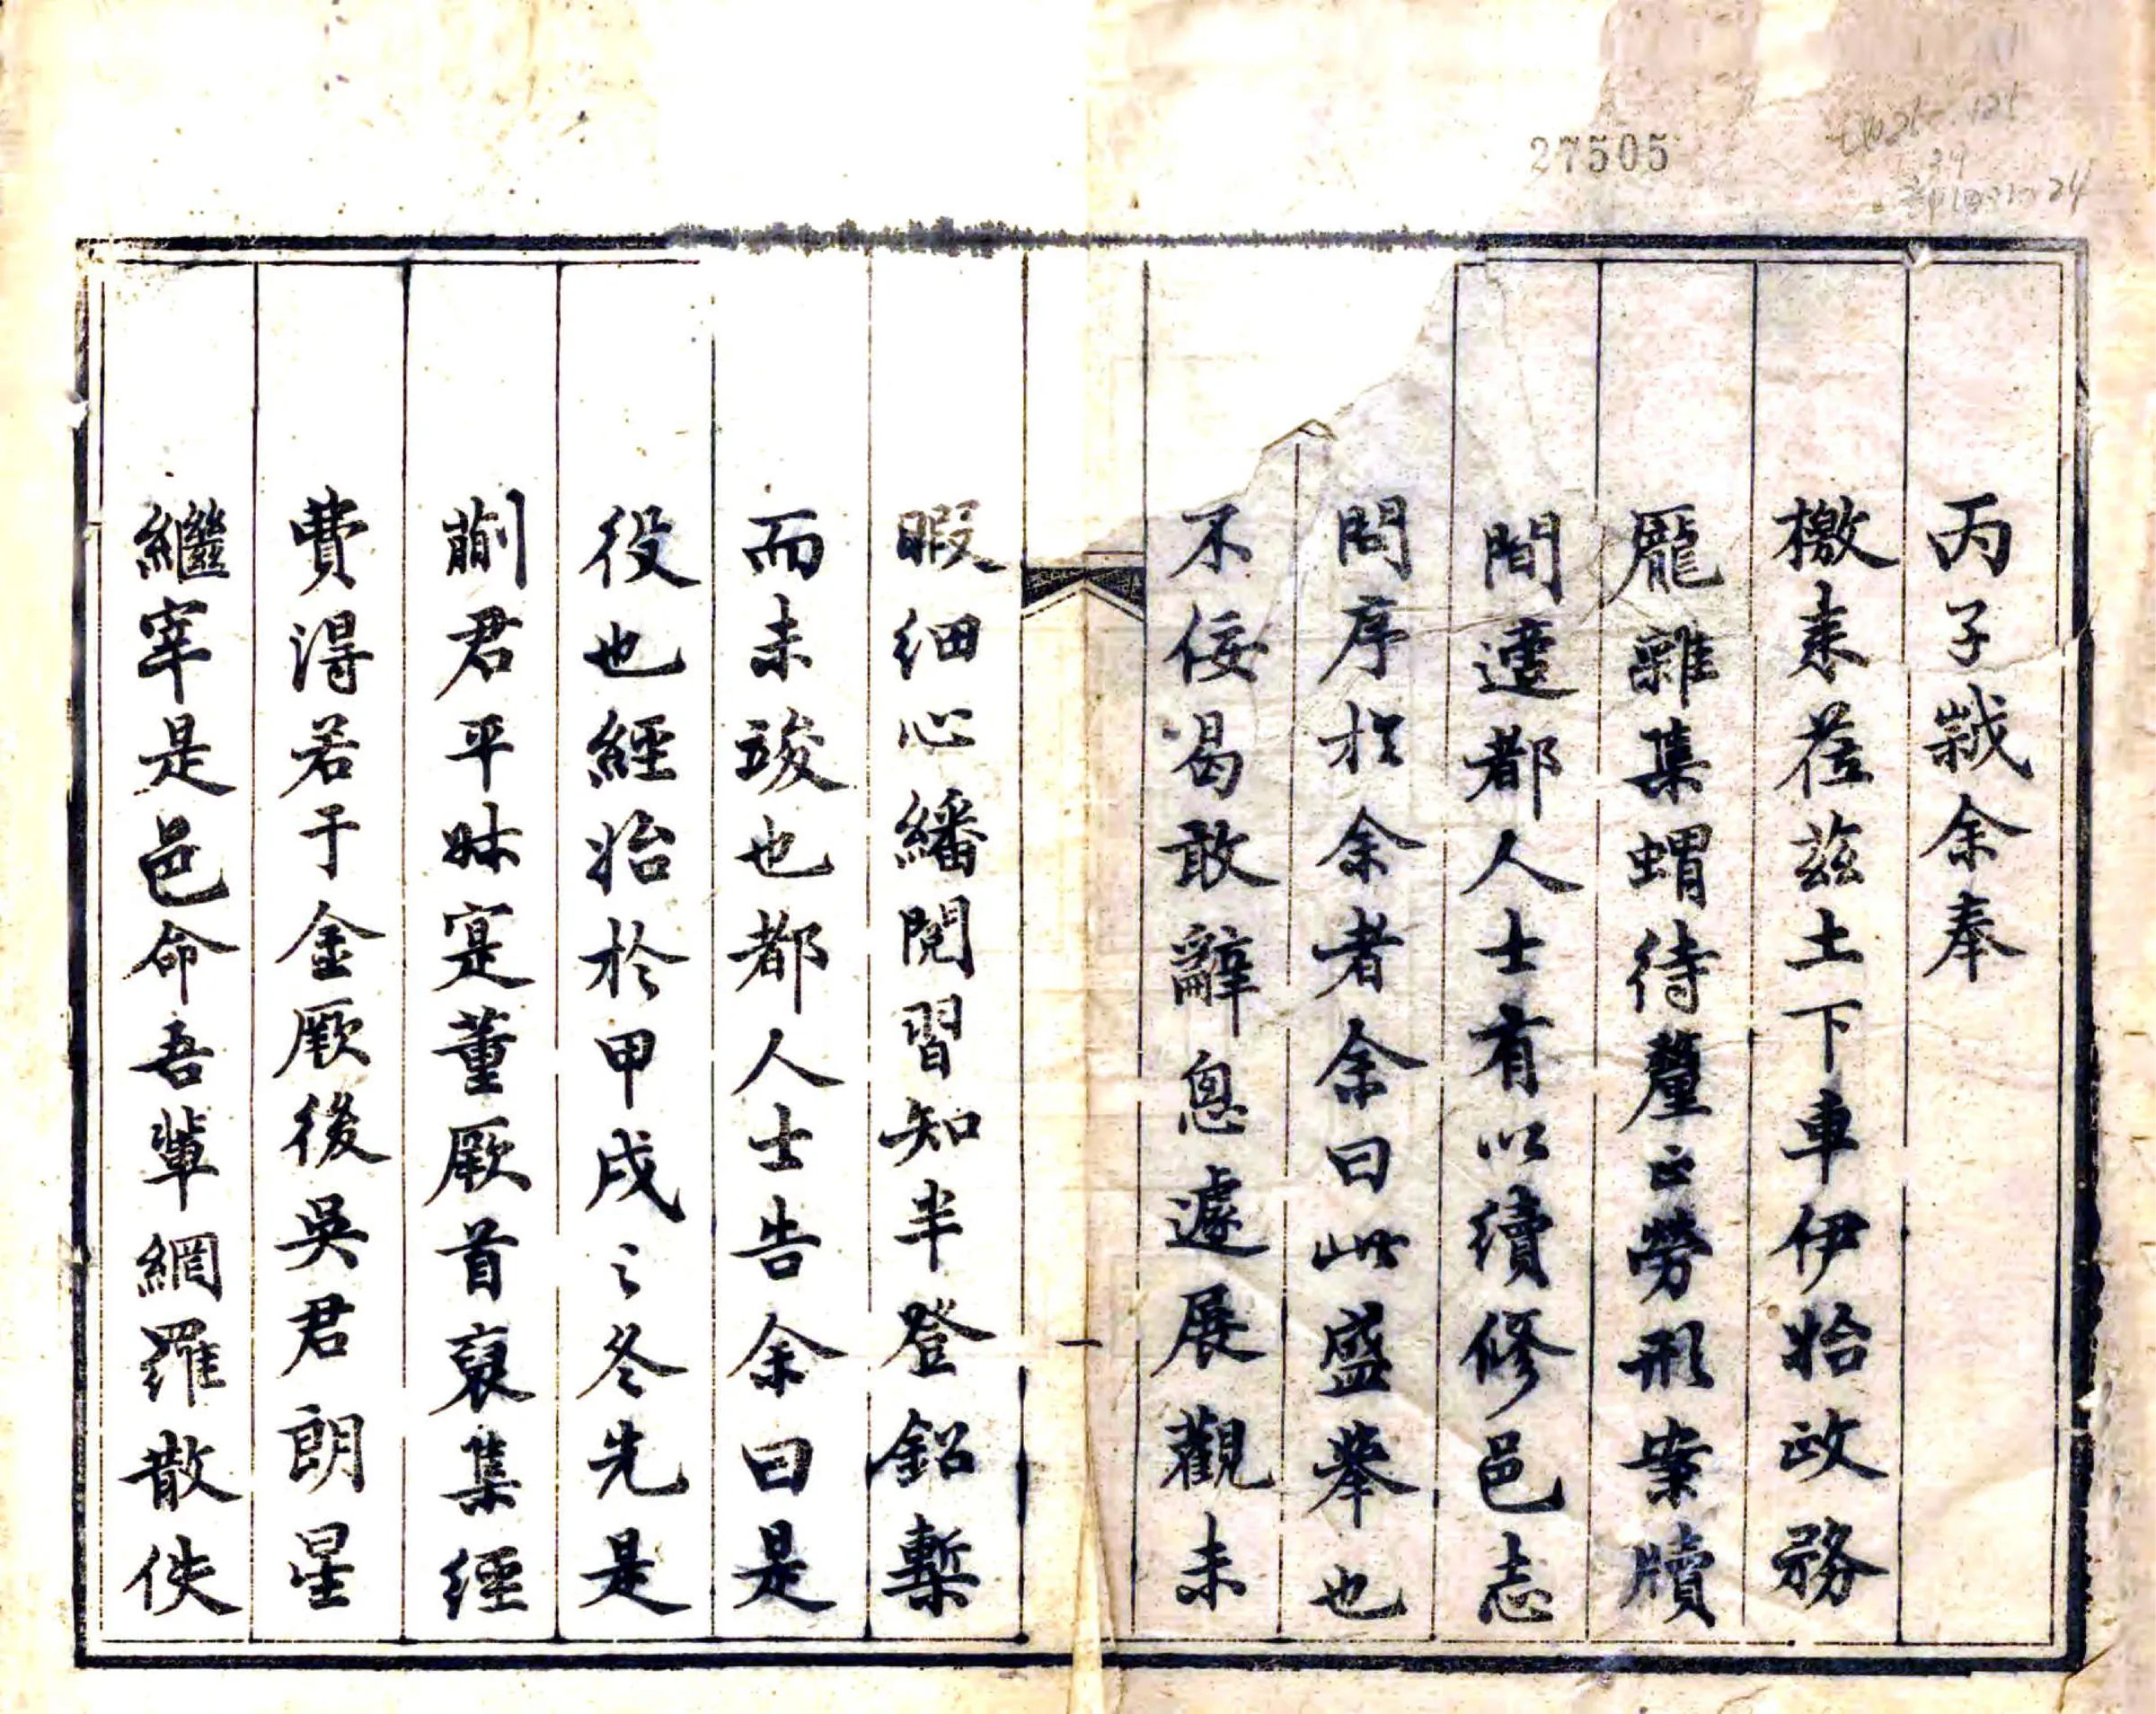 27505
丙子歲余奉
檄来莅茲土下車伊始政務
龎雜集蝟待釐正勞形案牘
間遽都人士有以續修邑志
問序於余者余曰此盛舉也
不佞曷敢辭息遽展觀未
暇细心繙閱習知半登鉛槧
而未竣也都人士告余曰是
役也經始於甲戌之冬先是
蒯君平林寔董厥首裒集經
費淂若干金厥後吳君朗星
繼宰是邑命吾輩網羅散佚
一